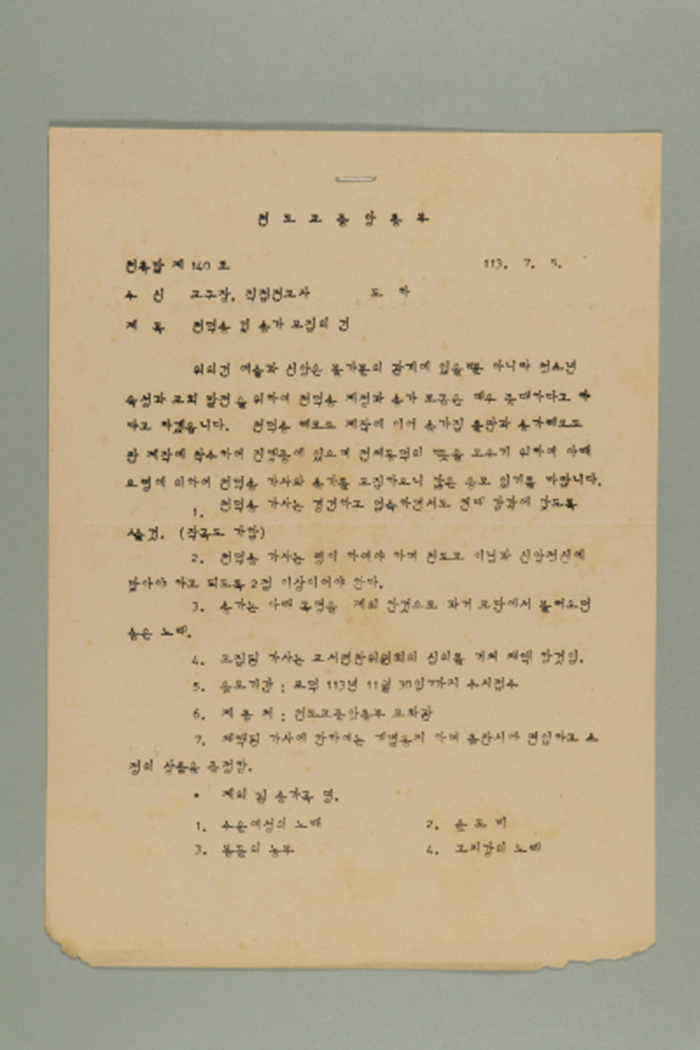 천도교중앙총부
제 140 호 113. 7. 5.
수 신 교구장, 직접전교사
제 목 천덕송 및 송가 모집의 건
위의건 예술과 신앙은 불가분의 관계에 있을뿐 아니라 청소년
육성과 교회 발전을 위하여 천덕송 제정과 송가 보급은 매우 중대하다고
하겠습니다. 천덕송 제작에 이어 송가집 출판과
제작에 착수하여 진행중에 있으며 뜻을 모우기 위하여 아래
요령에 의하여 천덕송 가사와 송가를 모집하오니 많은 응모 있기를 바랍니다.
1. 천덕송 가사는 경건하고 엄숙하면서도 현대 감각에 맞도록
할것. (작곡도 가함)
2. 천덕송 가사는 하여야 하며 천도교 이념과 신앙정신에
맞아야 하고 되도록 2절 이상이어야 한다.
3. 송가는 아래 곡명을 제외한것으로 과거 교단에서 불러오던
노래.
4. 모집된 가사는 교서편찬위원회의 심의를 거쳐 채택 할것임.
5. 응모기간 : 포덕 113년 11월 30일까지 수시접수
6. 제출처 : 천도교중앙총부 교화관
7. 채택된 가사에 한하여는 개별통지 하며 출판시에 편입하고 소
정의 상품을 증정함.
* 제외 될 송가곡 명.
1. 수운여성의 노래 2. 은도비
3. 봄들의 농부 4. 고리감의 노래